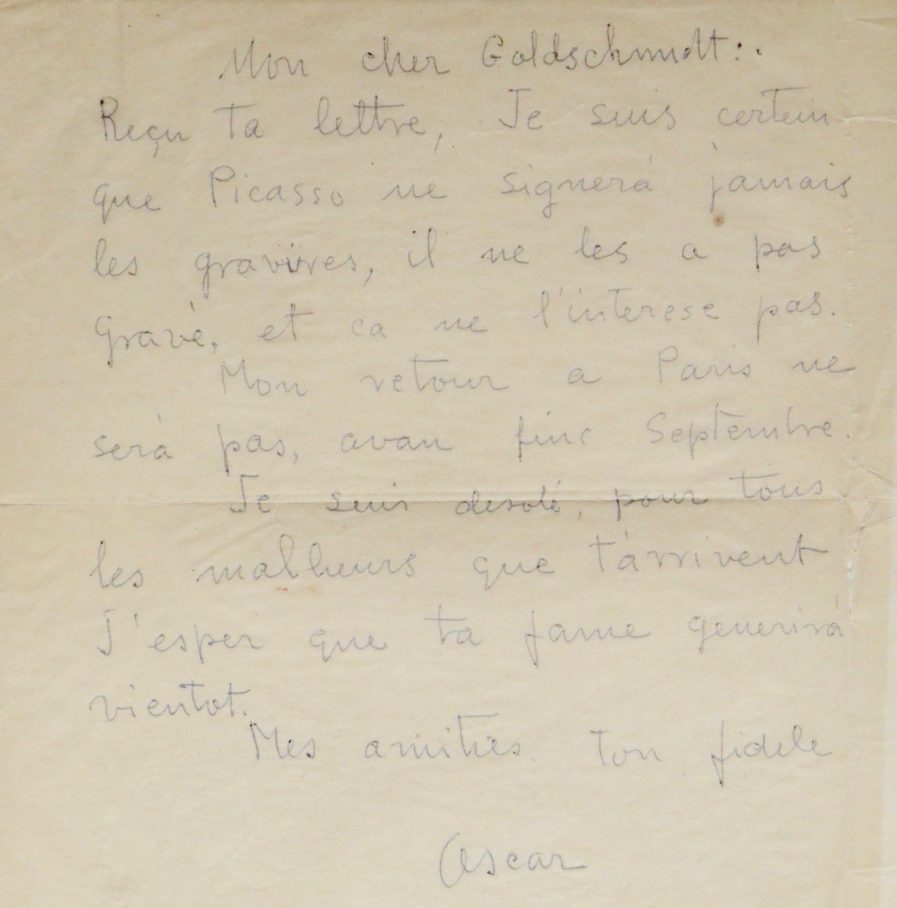 Mon cher Goldschmidt:.
Reçu ta lettre, Je suis certein
que Picasso ne signerá jamais
les gravures, il ne les a pas
Gravé, et ca ne l'interese pas.
Mon retour a Paris ne
será pas, avan finc Septembre.
Je suis desolé, pour tous
les malheurs que t'arrivent
J'esper que ta fame generirá
vientot.
Mes amities. Ton fidele
Oscar